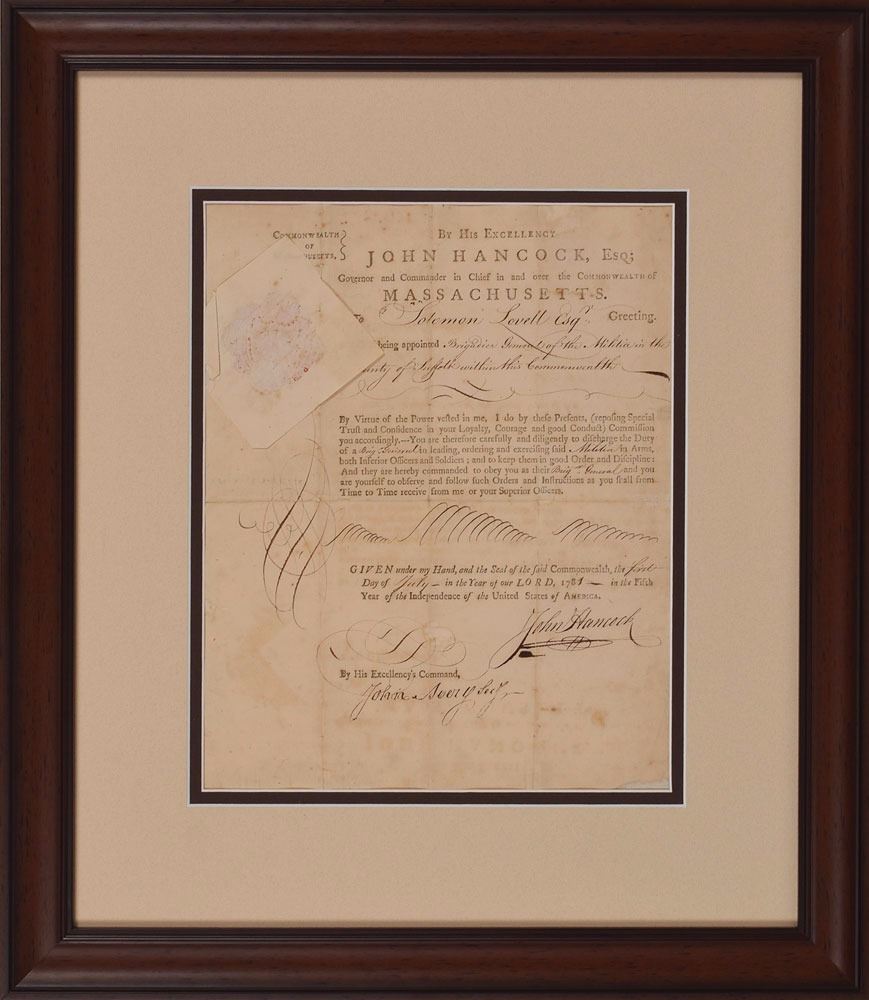 COMMONWEALTH
OF
By His EXCELLENCY
JOHN HANCOCK, Esq;
Governor and Commander in Chief in and over the COMMONWEALTH of
MASSACHUSETTS.
To Solomon Lovell Esqr. Greeting.
being appointed Brigadier General of the Militia in the
County of Suffolk within this Commonwealth
By Virtue of the Power vested in me, I do by these Presents, (reposing Special
Trust and Confidence in your Loyalty, Courage and good Conduct) Commission
you accordingly.—You are therefore carefully and diligently to discharge the Duty
of a Brig. General in leading, ordering and exercising said Militia in Arms,
both Inferior Officers and Soldiers; and to keep them in good Order and Discipline:
And they are hereby commanded to obey you as their Brigr. General and you
are yourself to observe and follow such Orders and Instructions as you shall from
Time to Time receive from me or your Superior Officers.
GIVEN under my Hand, and the Seal of the said Commonwealth, the first
Day of July — in the Year of our LORD, 1781 — in the Fifth
Year of the Independence of the United States of AMERICA.
John Hancock
By His Excellency's Command,
John Avery Secy.